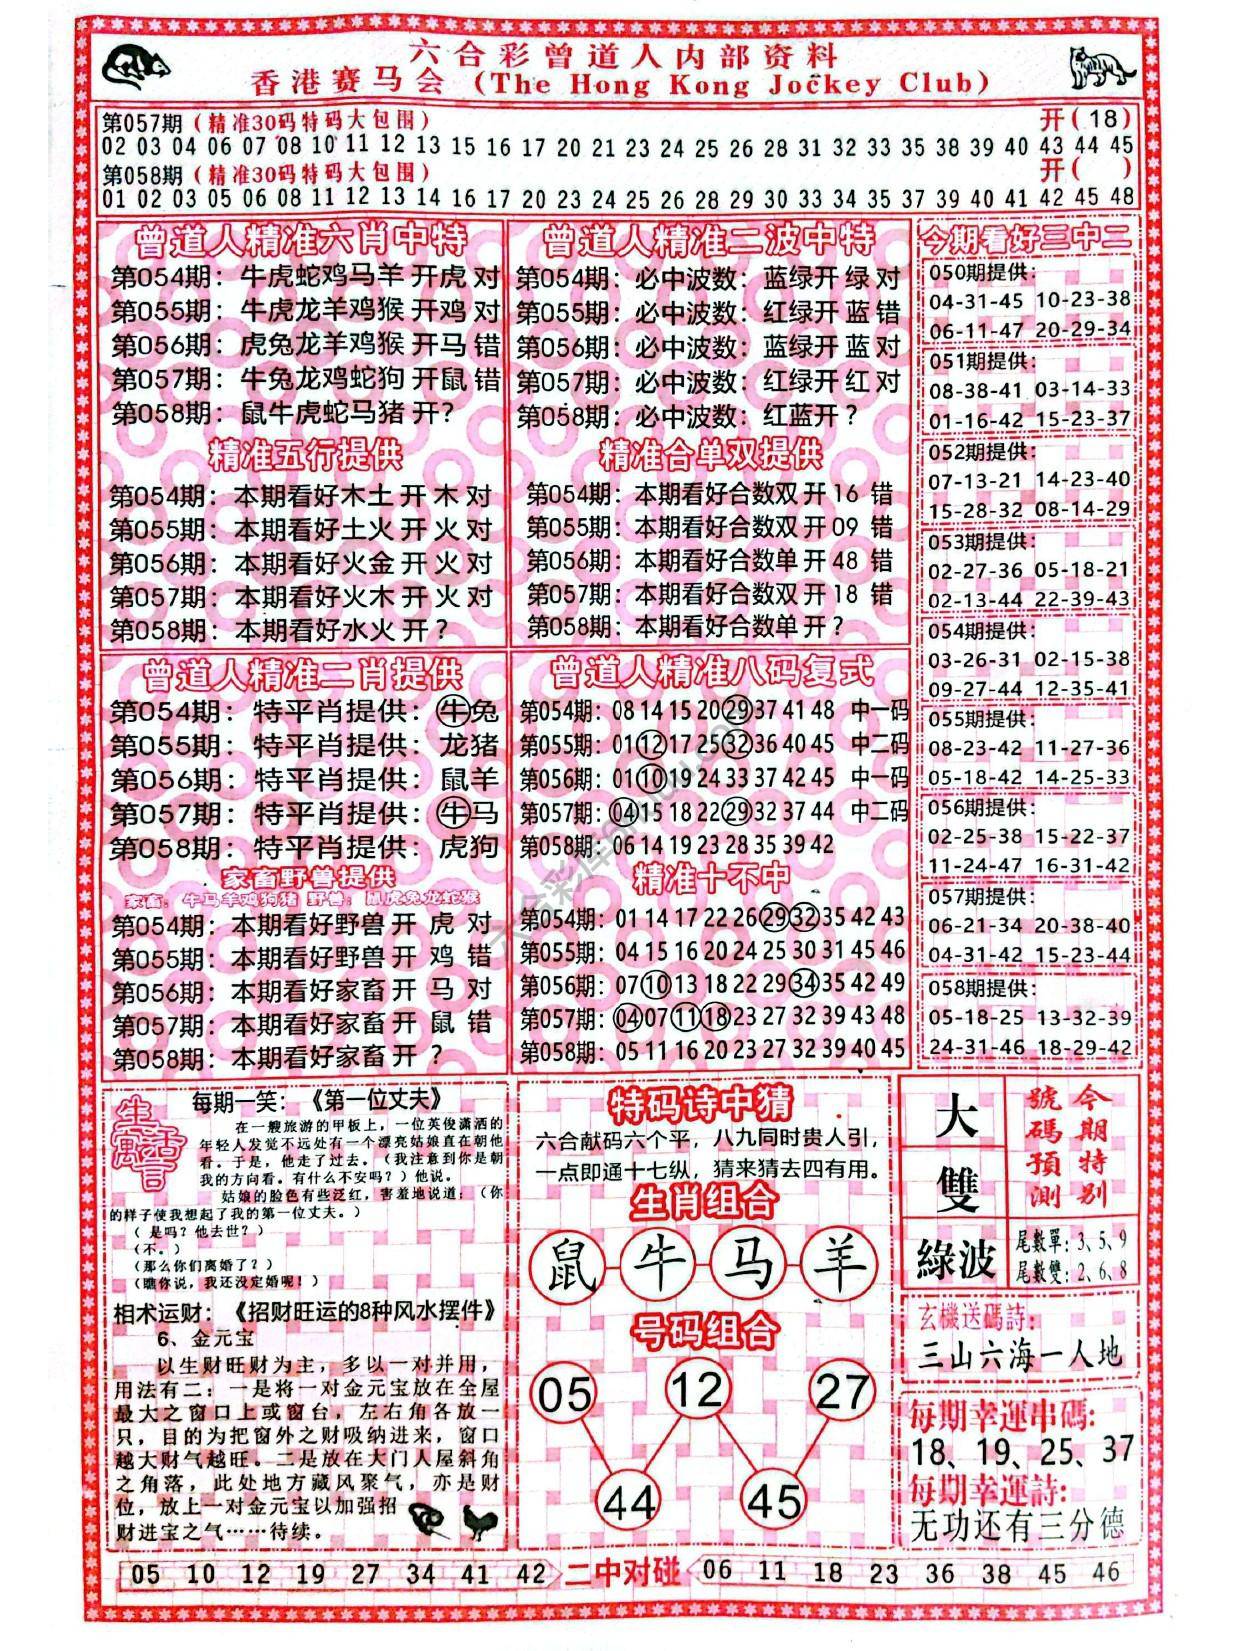 六合彩曾道人内部资料
香港赛马会 (The Hong Kong Jockey Club)
第057期(精准30码特码大包围) 开(18)
02 03 04 06 07 08 10 11 12 13 15 16 17 20 21 23 24 25 26 28 31 32 33 35 38 39 40 43 44 45
第058期(精准30码特码大包围) 开( )
01 02 03 05 06 08 11 12 13 14 16 17 20 23 24 25 28 29 30 33 34 35 37 39 40 41 42 45 48
曾道人精准六肖中特
第054期: 牛虎蛇鸡马羊 开虎 对
第055期: 牛虎龙羊鸡猴 开鸡 对
第056期: 虎兔龙羊鸡猴 开马 错
第057期: 牛兔龙鸡蛇狗 开鼠 错
第058期: 鼠牛虎蛇马猪 开?
精准五行提供
第054期: 本期看好木土 开 木 对
第055期: 本期看好土火 开 火 对
第056期: 本期看好火金 开 火 对
第057期: 本期看好火木 开 火 对
第058期: 本期看好水火 开?
曾道人精准二波中特
第054期: 必中波数: 蓝绿开 绿 对
第055期: 必中波数: 红绿开 蓝 错
第056期: 必中波数: 蓝绿开 蓝 对
第057期: 必中波数: 红绿开 红 对
第058期: 必中波数: 红蓝开 ?
精准合单双提供
第054期: 本期看好合数双 开 16 错
第055期: 本期看好合数双 开 09 错
第056期: 本期看好合数单 开 48 错
第057期: 本期看好合数双 开 18 错
第058期: 本期看好合数单 开?
今期看好三中二
050期提供:
04-31-45 10-23-38
06-11-47 20-29-34
051期提供:
08-38-41 03-14-33
01-16-42 15-23-37
052期提供:
07-13-21 14-23-40
15-28-32 08-14-29
053期提供:
02-27-36 05-18-21
02-13-44 22-39-43
054期提供:
03-26-31 02-15-38
09-27-44 12-35-41
055期提供:
08-23-42 11-27-36
05-18-42 14-25-33
056期提供:
02-25-38 15-22-37
11-24-47 16-31-42
057期提供:
06-21-34 20-38-40
04-31-42 15-23-44
058期提供:
05-18-25 13-32-39
24-31-46 18-29-42
曾道人精准二肖提供
第054期: 特平肖提供: 牛兔
第055期: 特平肖提供: 龙猪
第056期: 特平肖提供: 鼠羊
第057期: 特平肖提供: 牛马
第058期: 特平肖提供: 虎狗
家畜野兽提供
家畜: 牛马羊鸡狗猪 野兽: 鼠虎兔龙蛇猴
第054期: 本期看好野兽 开 虎 对
第055期: 本期看好野兽 开 鸡 错
第056期: 本期看好家畜 开 马 对
第057期: 本期看好家畜 开 鼠 错
第058期: 本期看好家畜 开 ?
曾道人精准八码复式
第054期: 08 14 15 20 29 37 41 48 中一码
第055期: 01 12 17 25 32 36 40 45 中二码
第056期: 01 10 19 24 33 37 42 45 中一码
第057期: 04 15 18 22 29 32 37 44 中二码
第058期: 06 14 19 23 28 35 39 42
精准十不中
第054期: 01 14 17 22 26 29 32 35 42 43
第055期: 04 15 16 20 24 25 30 31 45 46
第056期: 07 10 13 18 22 29 34 35 42 49
第057期: 04 07 11 18 23 27 32 39 43 48
第058期: 05 11 16 20 23 27 32 39 40 45
生活寓言
每期一笑: 《第一位丈夫》
在一艘旅游的甲板上，一位英俊潇洒的
年轻人发觉不远处有一个漂亮姑娘直在朝他
看。于是，他走了过去。（我注意到你是朝
我的方向看。有什么不安吗？）他说。
姑娘的脸色有些泛红，害羞地说道：（你
的样子使我想起了我的第一位丈夫。）
（是吗？他去世？）
（不。）
（那么你们离婚了？）
（瞧你说，我还没定婚呢！）
相术运财: 《招财旺运的8种风水摆件》
6、金元宝
以生财旺财为主，多以一对并用，
用法有二：一是将一对金元宝放在全屋
最大之窗口上或窗台，左右角各放一
只，目的为把窗外之财吸纳进来，窗口
越大财气越旺。二是放在大门人屋斜角
之角落，此处地方藏风聚气，亦是财
位，放上一对金元宝以加强招
财进宝之气……待续。
特码诗中猜
六合献码六个平，八九同时贵人引，
一点即通十七纵，猜来猜去四有用。
生肖组合
鼠 牛 马 羊
号码组合
05 12 27
44 45
大
雙
綠波
今期特别
號碼預測
尾數單: 3、5、9
尾數雙: 2、6、8
玄機送碼詩:
三山六海一人地
每期幸運串碼:
18、19、25、37
每期幸運詩:
无功还有三分德
05 10 12 19 27 34 41 42 二中对碰 06 11 18 23 36 38 45 46